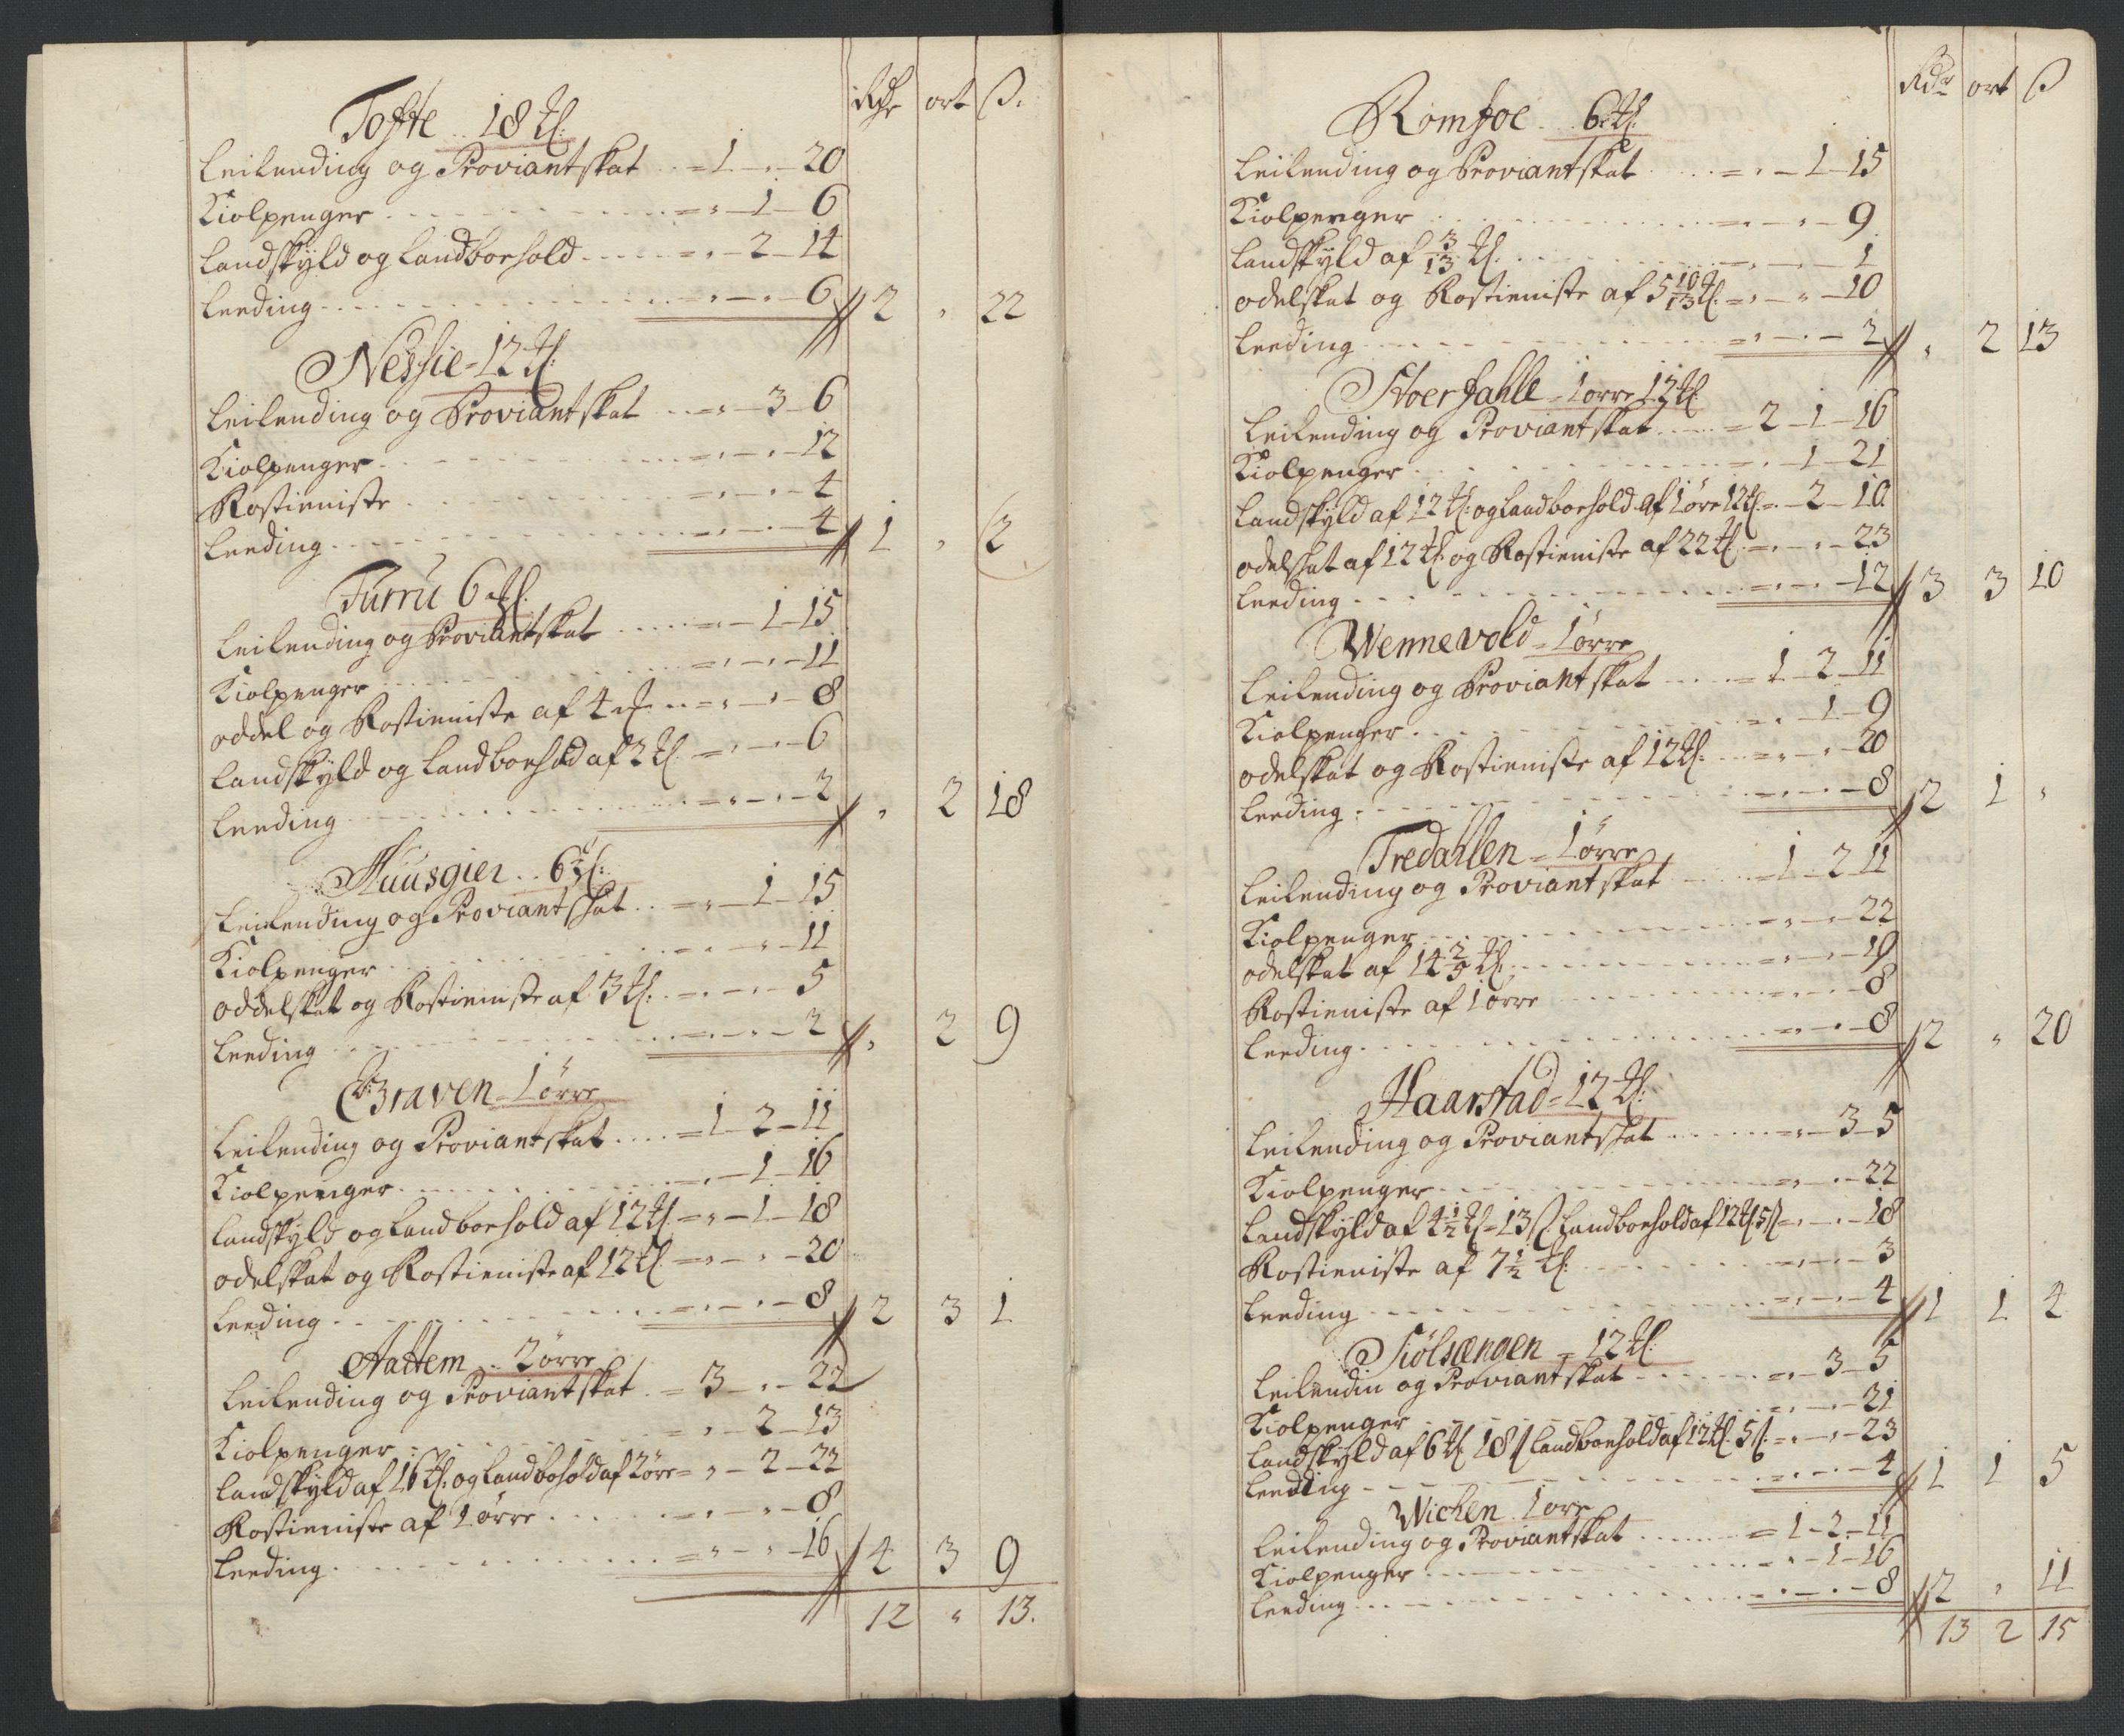 Rdr ort ß.
Tofte .. 18 tl:
Leilending og Proviantskat .. = 1 - " - 20
Kiolpenger = " - 1 - 6
Landskyld og Landboehold = " - 2 - 14
Leeding = " - " - 6 2 " 22
Nessie = 12 tl:
Leilending og Proviantskat = " - 3 - 6
Kiolpenger = " - " - 12
Rostieniste = " - " - 4
Leeding = " - " - 4 1 " 2
Furru 6 tl:
Leilending og Proviantskat = " - 1 - 15
Kiolpenger = " - " - 11
oddel og Rostieniste af 4 tl: = " - " - 8
Landskyld og Landboehold af 2 tl: = " - " - 6
Leeding = " - " - 2 " 2 18
Huusgier .. 6 tl:
Leilending og Proviantskat .. = " - 1 - 15
Kiolpenger = " - " - 11
oddelskat og Rostieniste af 3 tl: = " - " - 5
Leeding = " - " - 2 " 2 9
Graven = 1 ørre
Leilending og Proviantskat = 1 - 2 - 11
Kiolpenger = " - 1 - 16
Landskyld og Landboehold af 12 tl: = " - 1 - 18
odelskat og Rostieniste af 12 tl: = " - " - 20
Leeding = " - " - 8 2 3 1
Aattem .. 2 ørre
Leilending og Proviantskat . = 3 - " - 22
Kiolpenger = " - 2 - 13
Landskyld af 16 tl: og Landbohold af 2 øre = " - 2 - 22
Rostieniste af 1 ørre = " - " - 8
Leeding = " - " - 16 4 3 9
12 " 13.
Rdr ort ß
Romfoe .. 6 tl:
Leilending og Proviantskat = " - 1 - 15
Kiolpenger = " - " - 9
Landskyld af 3/13 tl: = " - " - 1
odelskat og Rostieniste af 5 10/13 tl: = " - " - 10
Leeding = " - " - 2 " 2 13
Stoerfahle = 1 ørre 12 tl:
Leilending og Proviantskat = 2 - 1 - 16
Kiolpenger = " - 1 - 21
Landskyld af 12 tl: og Landboehold af 1 øre 12 tl: = " - 2 - 10
odelskat af 12 tl: og Rostieniste af 22 tl: = " - " - 23
Leeding = " - " - 12 3 3 10
Wennevold = 1 ørre
Leilending og Proviantskat = 1 - 2 - 11
Kiolpenger = " - 1 - 9
odelskat og Rostieniste af 12 tl: = " - " - 20
Leeding = " - " - 8 2 1 "
Tredahlen = 1 ørre
Leilending og Proviantskat = 1 - 2 - 11
Kiolpenger = " - " - 22
odelskat af 14 2/5 tl: = " - " - 19
Rostieniste af 1 ørre = " - " - 8
Leeding = " - " - 8 2 " 20
Haarstad = 12 tl:
Leilending og Proviantskat = " - 3 - 5
Kiolpenger = " - " - 22
Landskyld af 4 1/2 tl: = 13 ß Landboehold af 12 tl: 5 ß = " - " - 18
Rostieniste af 7 1/2 tl: = " - " - 3
Leeding = " - " - 4 1 1 4
Siølsængen = 12 tl:
Leilendin og Proviantskat = " - 3 - 5
Kiolpenger = " - " - 21
Landskyld af 6 tl: 18 ß Landboehold af 12 tl: 5 ß: = " - " - 23
Leeding = " - " - 4 1 1 5
Wichen 1 øre
Leilending og Proviantskat = 1 - 2 - 11
Kiolpenger = " - 1 - 16
Leeding = " - " - 8 2 " 11
13 2 15